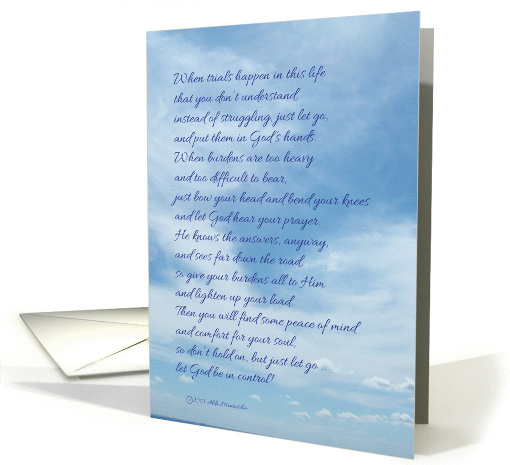 When trials happen in this life
that you don't understand,
instead of struggling, just let go,
and put them in God's hands.
When burdens are too heavy
and too difficult to bear,
just bow your head and bend your knees
and let God hear your prayer.
He knows the answers, anyway,
and sees far down the road,
so give your burdens all to Him
and lighten up your load.
Then you will find some peace of mind
and comfort for your soul,
so don't hold on, but just let go...
let God be in control!